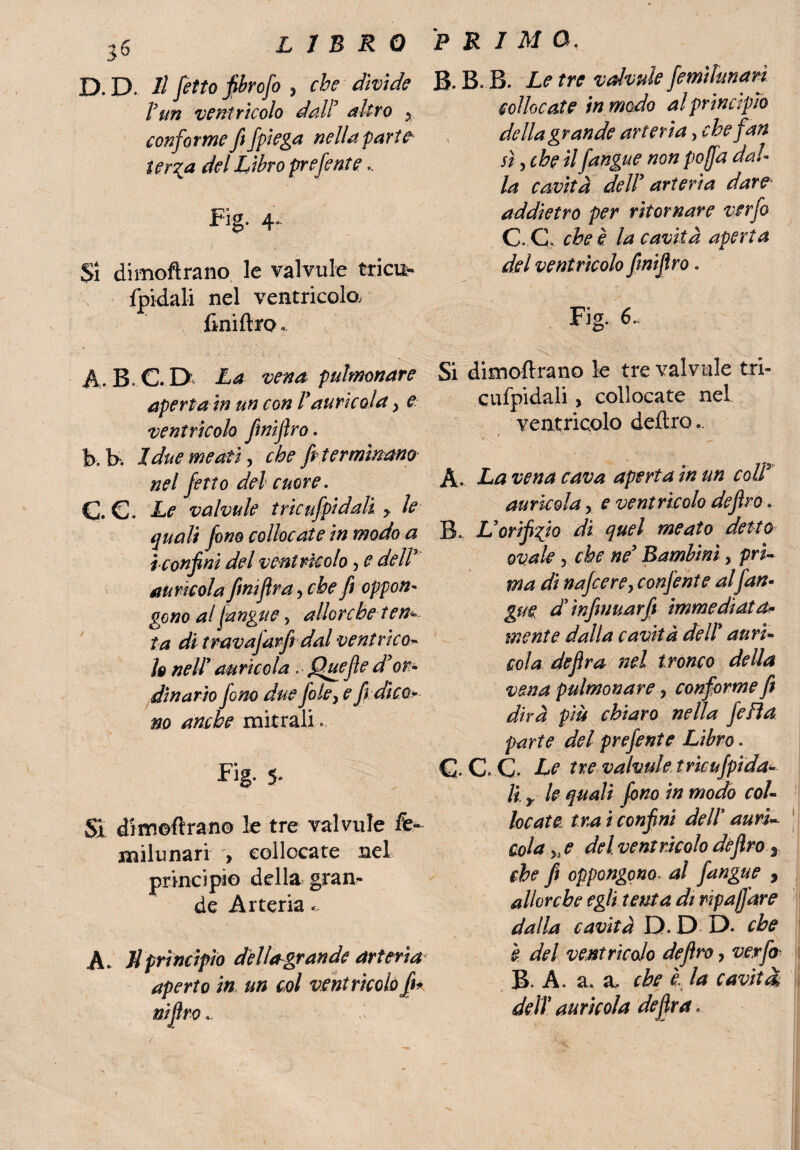 36 LIBRO PRIMO.
D. D. Il ſetto fibroſo, che divide
l'un ventricolo dall' altro,
conforme ſi ſpiega nella parte
terza del Libro preſente.
Fig. 4.
Si dimoſtrano le valvule tricu-
ſpidali nel ventricolo
ſiniſtro.
A. B. C. D. La vena pulmonare
aperta in un con l'auricola, e
ventricolo ſiniſtro.
b. b. I due meati, che ſi terminano
nel ſetto del cuore.
C. C. Le valvule tricuſpidali, le
quali ſono collocate in modo a
i confini del ventricolo, e dell'
auricola ſiniſtra, che ſi oppon-
gono al ſangue, allorche ten-
ta di travaſarſi dal ventrico-
lo nell' auricola. Queſte d'or-
dinario ſono due ſole, e ſi dico-
no anche mitrali.
Fig. 5.
Si dimoſtrano le tre valvule ſe-
milunari, collocate nel
principio della gran-
de Arteria.
A. Il principio della grande arteria
aperto in un col ventricolo ſi-
niſtro.
B. B. B. Le tre valvule ſemilunari
collocate in modo al principio
della grande arteria, che fan
sì, che il ſangue non poſſa dal-
la cavità dell' arteria dare
addietro per ritornare verſo
C. C. che è la cavità aperta
del ventricolo ſiniſtro.
Fig. 6.
Si dimoſtrano le tre valvule tri-
cuſpidali, collocate nel
ventricolo deſtro.
A. La vena cava aperta in un coll'
auricola, e ventricolo deſtro.
B. L'orifizio di quel meato detto
ovale, che ne' Bambini, pri-
ma di naſcere, conſente al ſan-
gue d'inſinuarſi immediata-
mente dalla cavità dell' auri-
cola deſtra nel tronco della
vena pulmonare, conforme ſi
dirà più chiaro nella ſeſta
parte del preſente Libro.
C. C. C. Le tre valvule tricuſpida-
li, le quali ſono in modo col-
locate tra i confini dell' auri-
cola, e del ventricolo deſtro,
che ſi oppongono al ſangue,
allorche egli tenta di ripaſſare
dalla cavità D. D D. che
è del ventricolo deſtro, verſo
B. A. a. a. che è la cavità
dell' auricola deſtra.